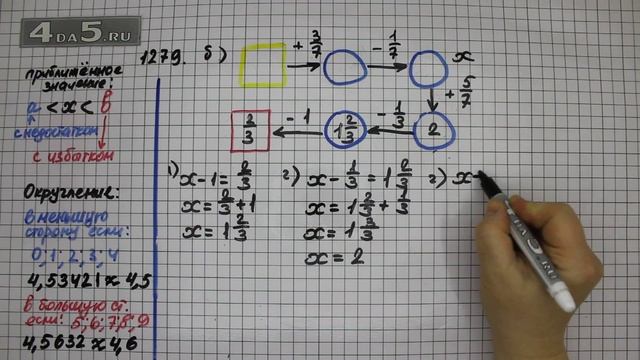 4DA5.RU
приближённое
значение:
а < x < б
с недостатком
с избытком
Округление:
в меньшую
сторону если:
0; 1; 2; 3; 4
4,53421 ≈ 4,5
в большую ст.
если: 5; 6; 7; 8; 9
4,5632 ≈ 4,6
1279. б)
+ 3/7 - 1/7 x
+ 5/7
2/3 - 1 1 2/3 - 1/3 2
1) x - 1 = 2/3
x = 2/3 + 1
x = 1 2/3
2) x - 1/3 = 1 2/3
x = 1 2/3 + 1/3
x = 1 3/3
x = 2
2) x